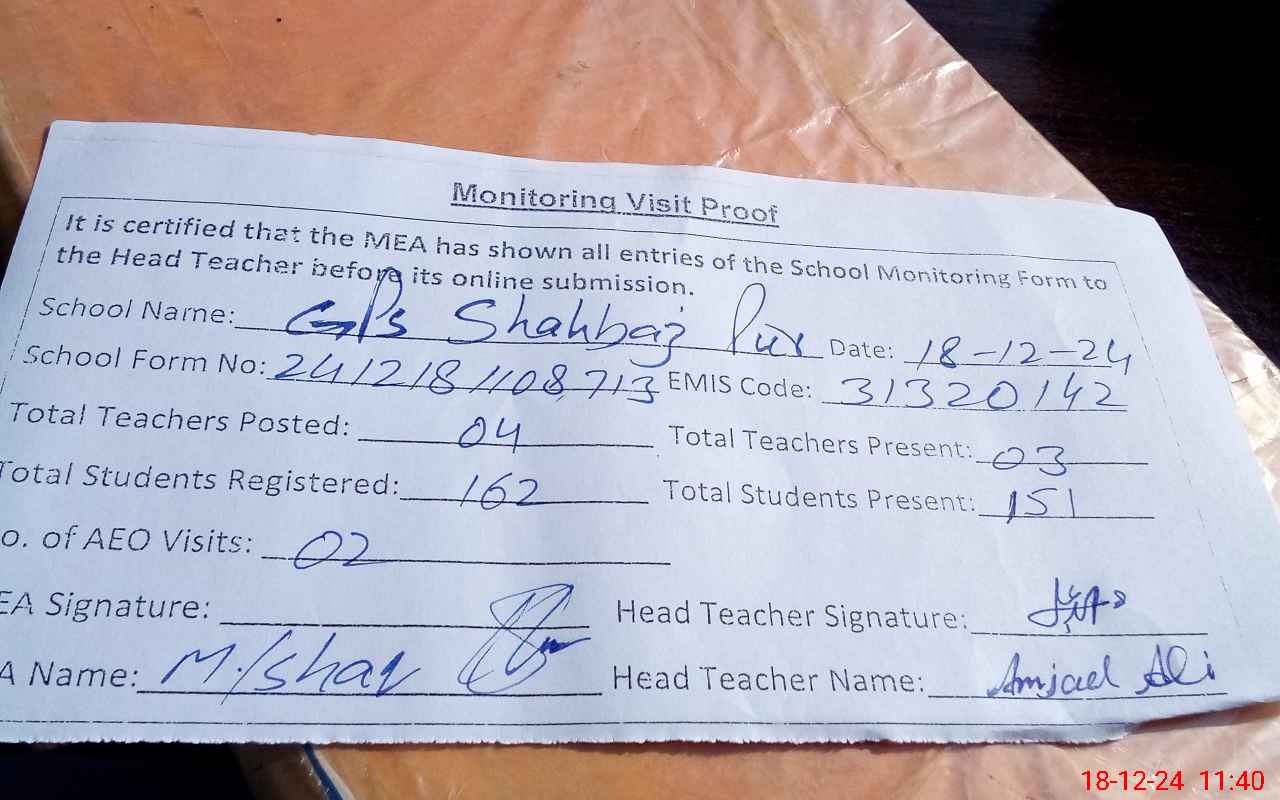 Monitoring Visit Proof
It is certified that the MEA has shown all entries of the School Monitoring Form to
the Head Teacher before its online submission.
School Name: GPS Shahbaz Pur Date: 18-12-24
School Form No: 241218 1108713 EMIS Code: 31320142
Total Teachers Posted: 04 Total Teachers Present: 03
Total Students Registered: 162 Total Students Present: 151
o. of AEO Visits: 02
EA Signature: Head Teacher Signature:
A Name: M. Head Teacher Name: Amjad Ali
18-12-24 11:40